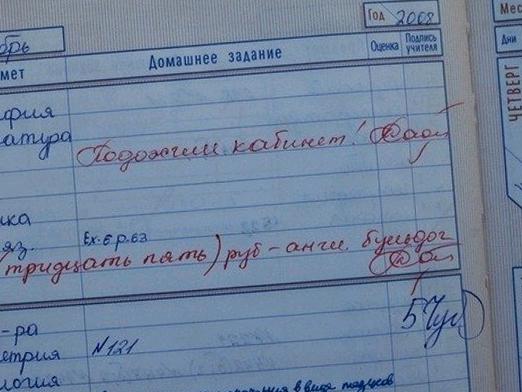 Год 2008
Мес
брь
мет Домашнее задание Оценка Подпись учителя
Дни
ЧЕТВЕРГ
фия
атура Подожгли кабинет!
ка
яз. Ex. 6 p. 63
тридцать пять) руб - англ. бульдог
5
-ра
етрия №121
логия в виде